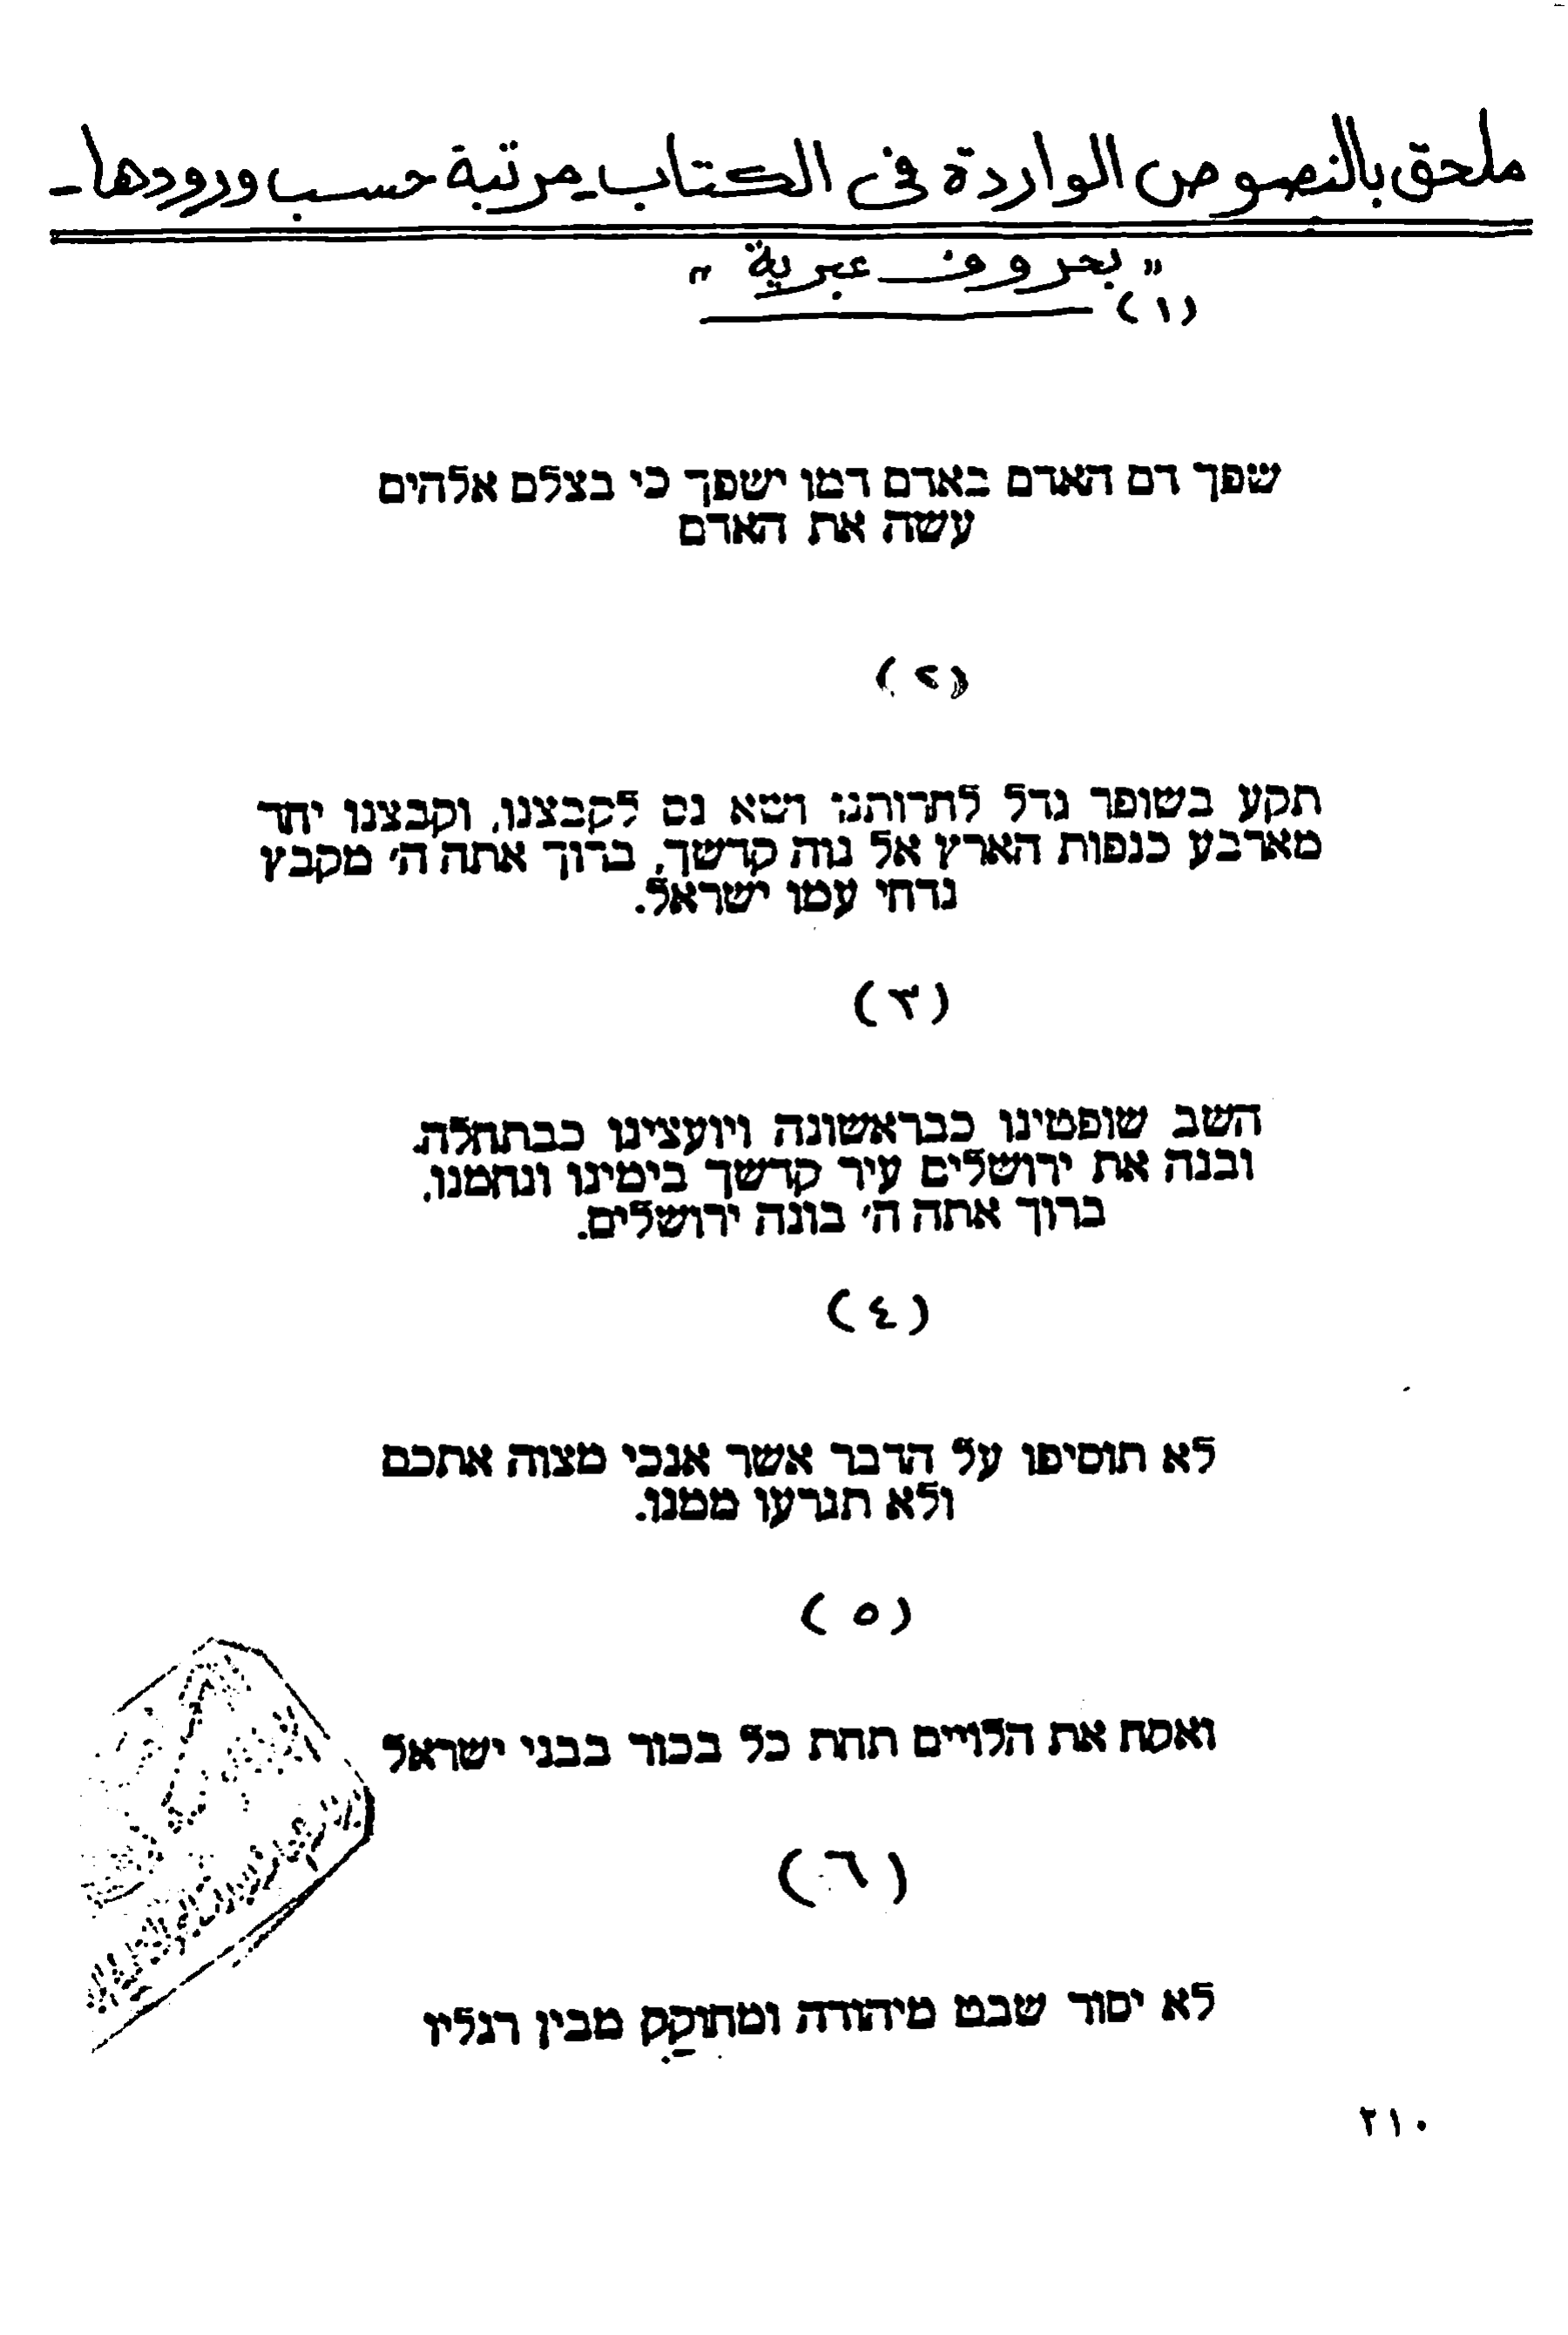 ملحق بالنصوص الواردة فى الكتاب مرتبة حسب ورودها -
" بحروف عبرية "
(١)
שפך דם האדם באדם דמו ישפך כי בצלם אלהים
עשה את האדם
(٢)
תקע בשופר גדל לחרותנו ושא נס לקבצנו, וקבצנו יחד
מארבע כנפות הארץ אל נוה קדשך, ברוך אתה ה׳ מקבץ
נדחי עמו ישראל.
(٣)
השב שופטינו כבראשונה ויועצינו כבתחלה.
ובנה את ירושלים עיר קדשך בימינו ונחמנו.
ברוך אתה ה׳ בונה ירושלים.
(٤)
לא תוסיפו על הדבר אשר אנכי מצוה אתכם
ולא תגרעו ממנו.
(٥)
ואסח את הלויים תחת כל בכור בבני ישראל
(٦)
לא יסור שבט מיהודה ומחוקק מבין רגליו
٢١٠